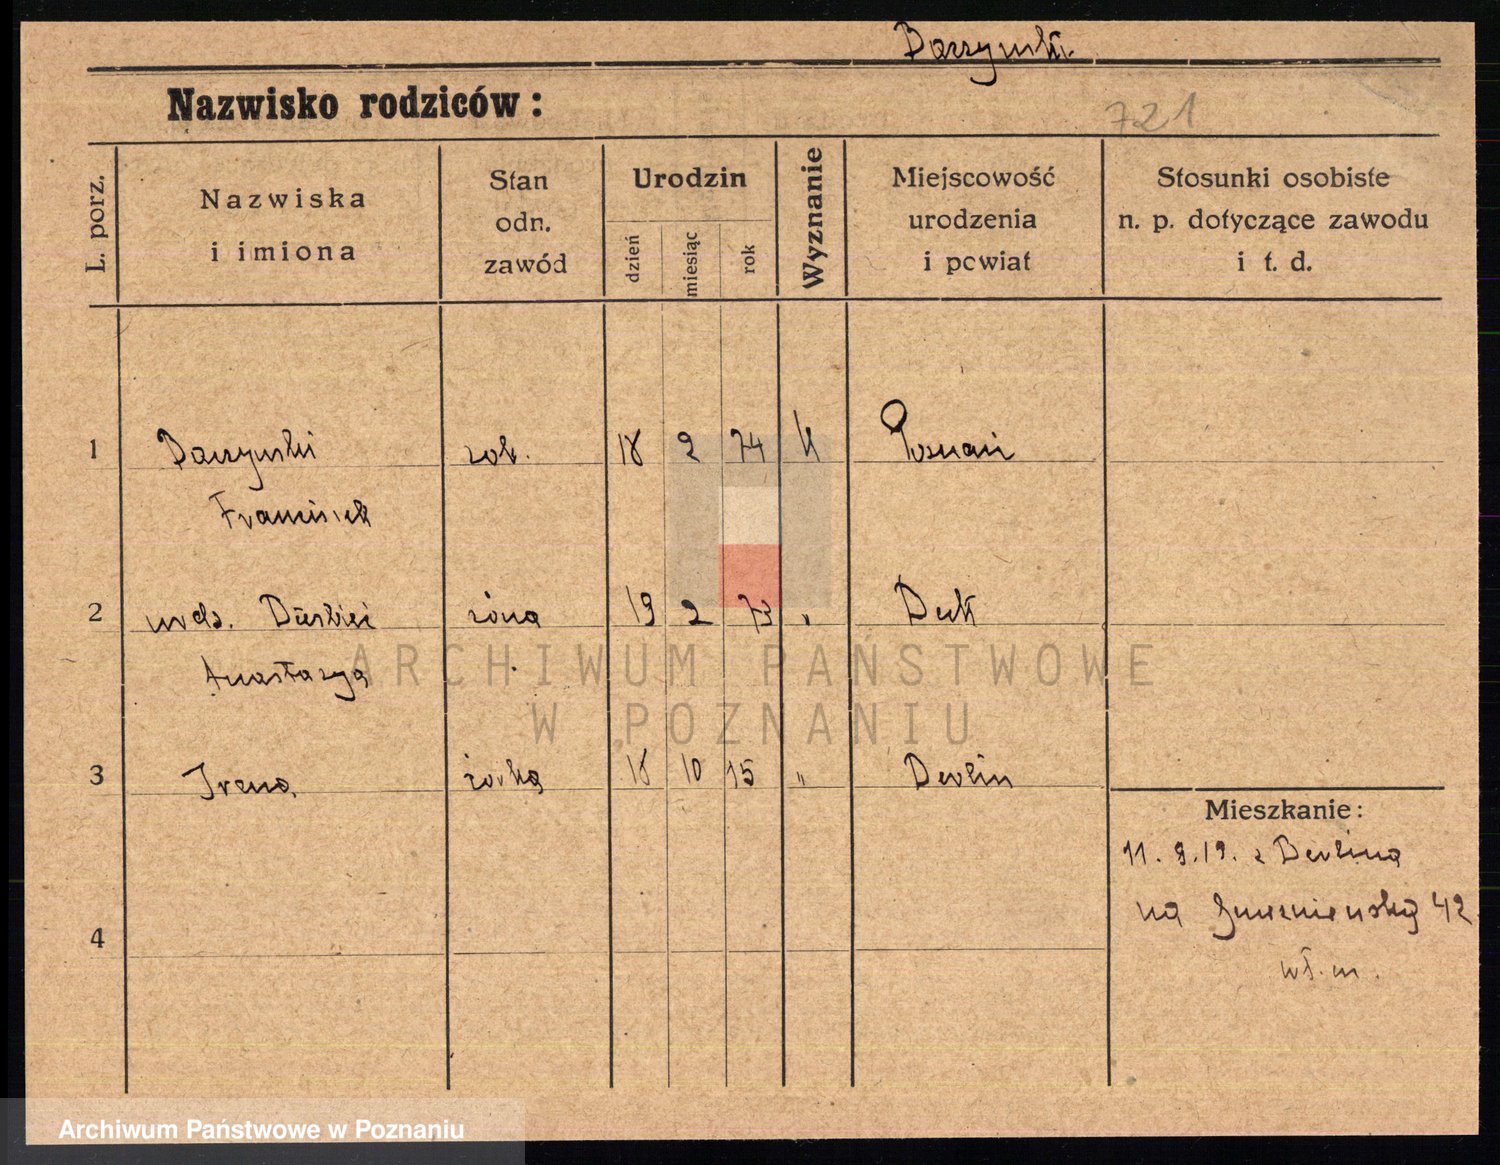 Daczyński.
Nazwisko rodziców :
721
L. porz.
Nazwiska
i imiona
Stan
odn.
zawód
Urodzin
dzień
miesiąc
rok
Wyznanie
Miejscowość
urodzenia
i powiat
Stosunki osobiste
n. p. dotyczące zawodu
i t. d.
1 Daczyński rob. 18 2 74 k Poznań
Franciszek
2 żona 19 2 73 "
Anastazya
ARCHIWUM PAŃSTWOWE
W POZNANIU
3 Irena córka 18 10 15 " Berlin
Mieszkanie:
11.9.19. z Berlina
na Gnieźnieńską 42
wł. m.
4
Archiwum Państwowe w Poznaniu